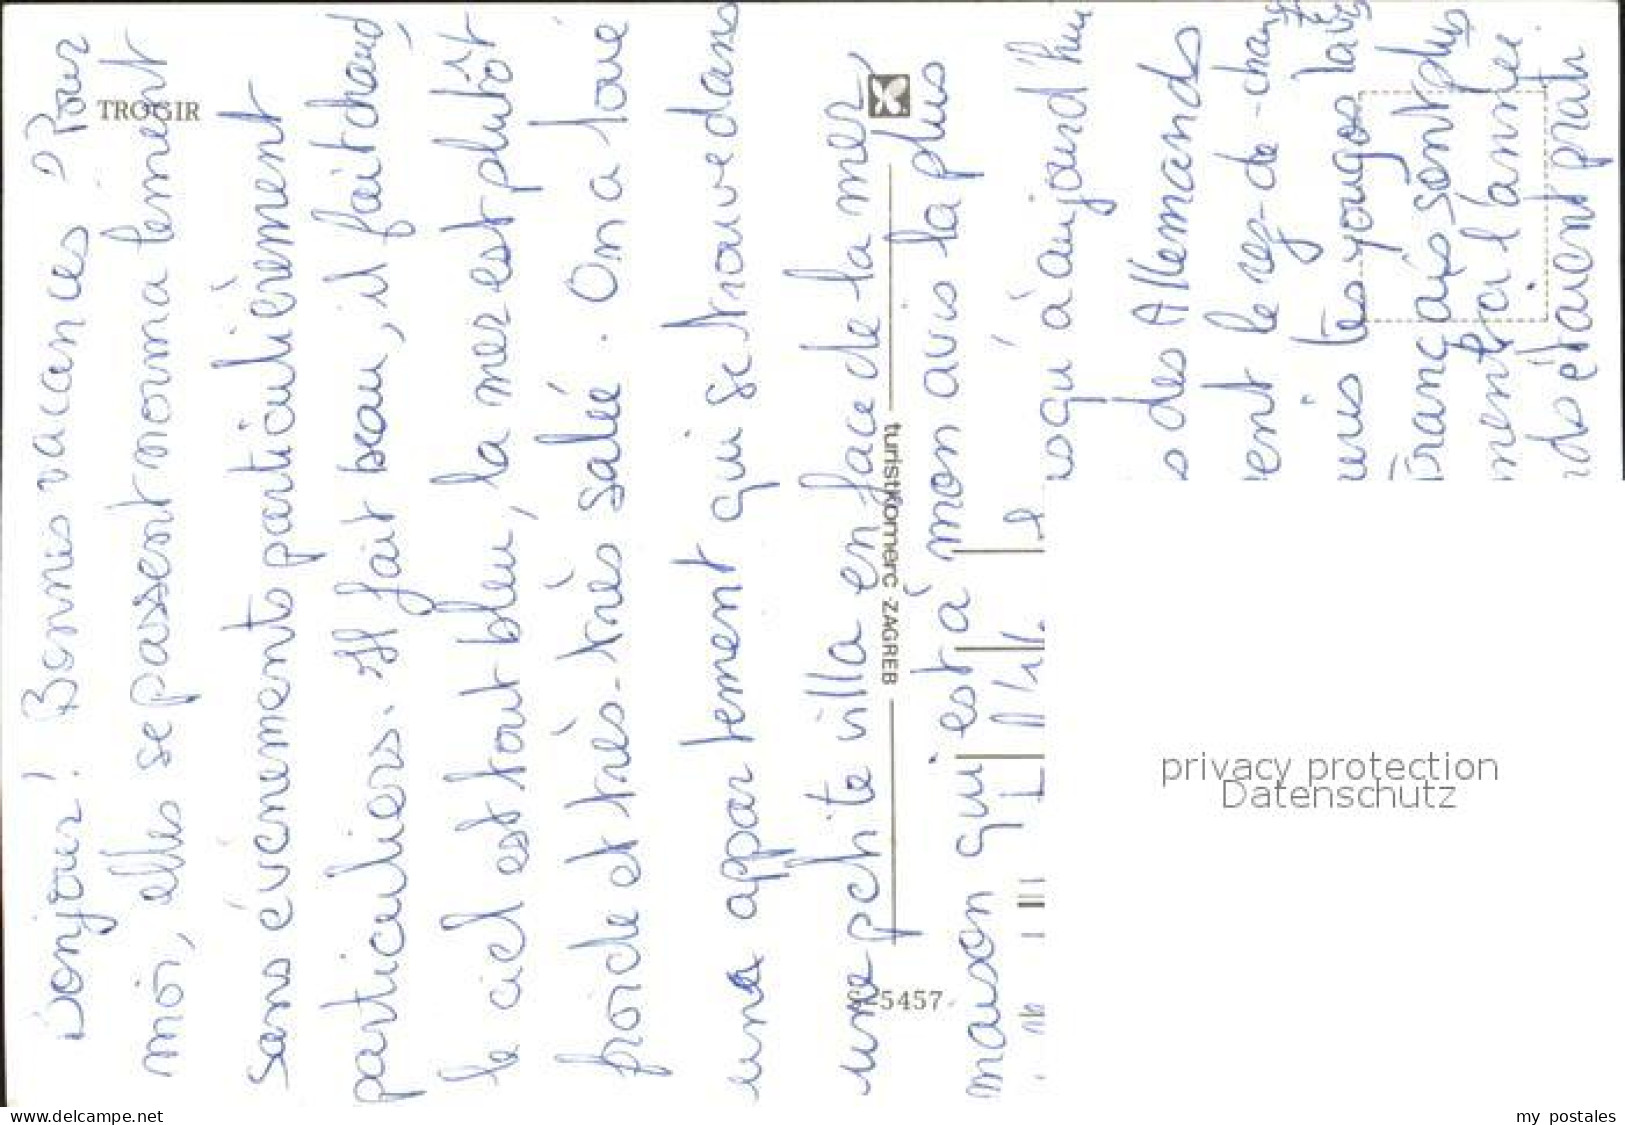 TROGIR
Bonjour ! Bonnes vacances ? Pour
moi, elles se passent normalement
sans événements particulièrement
particuliers. Il fait beau, il fait chaud,
le ciel est tout bleu, la mer est plutôt
froide et très-très salée. On a loué
une appartement qui se trouve dans
une petite villa en face de la mer,
maison qui est à mon avis la plus
usqu'à aujourd'hui
des Allemands
ent le rez-de-chau
les yougos
Français sont plus
ment à l'année.
étaient
turistkomerc - ZAGREB
S-5457
privacy protection
Datenschutz
www.delcampe.net
my postales